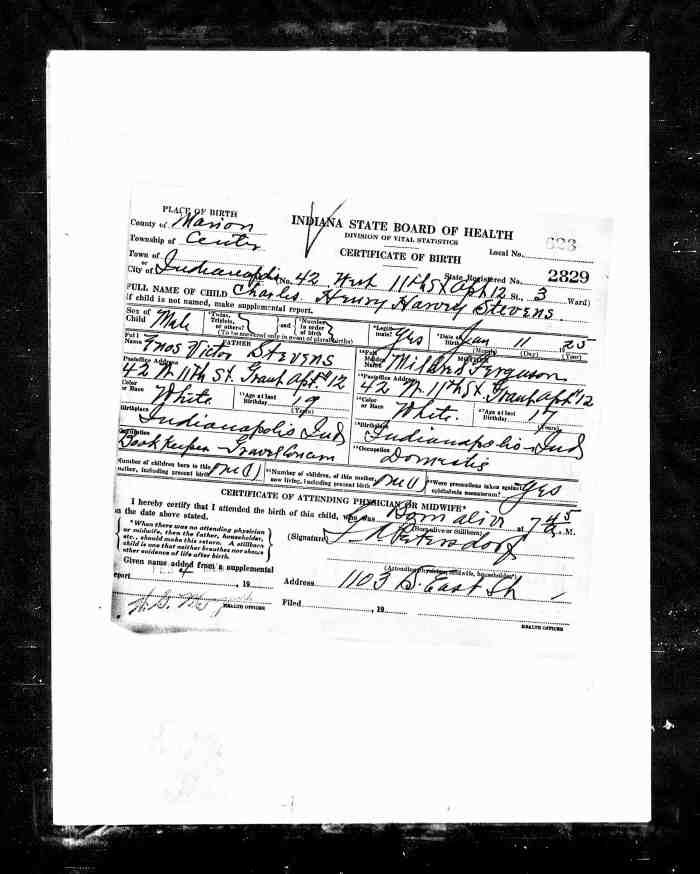 PLACE OF BIRTH
County of Marion
Township of Center
Town of
or
City of Indianapolis
INDIANA STATE BOARD OF HEALTH
DIVISION OF VITAL STATISTICS
CERTIFICATE OF BIRTH
Local No. 683
State Registered No. 2829
(No. 42 West 11th St Apt 12 St., 3 Ward)
FULL NAME OF CHILD Charles Henry Harvey Stevens
If child is not named, make supplemental report.
Sex of Child Male
Twins, Triplets, or others? and Number in order of birth
(To be answered only in event of plural births)
Legitimate? Yes
Date of Birth Jan 11 25
(Month) (Day) (Year)
FATHER
Full Name Enos Victor Stevens
Postoffice Address
42 W. 11th St. Grant Apt. #12
Color or Race White
Age at last Birthday 19
(Years)
Birthplace Indianapolis Ind
Occupation
Book keeper - Gravel Concern
MOTHER
Full Maiden Name Mildred Ferguson
Postoffice Address
42 W. 11th St. Grant Apt 12
Color or Race White
Age at last Birthday 17
(Years)
Birthplace Indianapolis - Ind
Occupation Domestic
Number of children born to this mother, including present birth One (1)
Number of children, of this mother, now living, including present birth One (1)
Were precautions taken against ophthalmia neonatorum? Yes
CERTIFICATE OF ATTENDING PHYSICIAN OR MIDWIFE*
I hereby certify that I attended the birth of this child, who was Born alive at 7 45 M.
(Born alive or Stillborn)
on the date above stated.
*When there was no attending physician
or midwife, then the father, householder,
etc., should make this return. A stillborn
child is one that neither breathes nor shows
other evidence of life after birth.
(Signature) Petersdorf
(Attending physician, midwife, householder*)
Given name added from a supplemental
report , 19
HEALTH OFFICER
Address 1103 S. East St
Filed , 19
HEALTH OFFICER